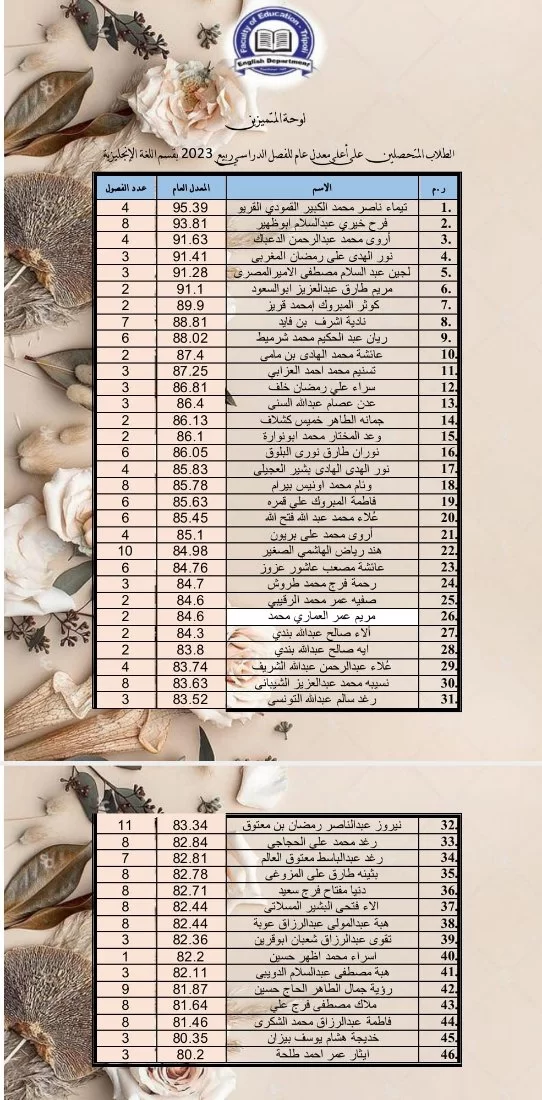 Faculty of Education - Tripoli
English Department
لوحة المتميزين
الطلاب المتحصلين على أعلى معدل عام للفصل الدراسي ربيع 2023 بقسم اللغة الإنجليزية
ر.م الاسم المعدل العام عدد الفصول
1. تيماء ناصر محمد الكبير القمودي القريو 95.39 4
2. فرح خيري عبدالسلام ابوظهير 93.81 8
3. أروى محمد عبدالرحمن الدعباك 91.63 4
4. نور الهدى على رمضان المغربي 91.41 3
5. لجين عبد السلام مصطفى الاميرالمصرى 91.28 3
6. مريم طارق عبدالعزيز ابوالسعود 91.1 2
7. كوثر المبروك إمحمد قريز 89.9 2
8. نادية اشرف بن فايد 88.81 7
9. ريان عبد الحكيم محمد شرميط 88.02 6
10. عائشة محمد الهادى بن مامى 87.4 2
11. تسنيم محمد احمد العزابي 87.25 3
12. سراء علي رمضان خلف 86.81 3
13. عدن عصام عبدالله السني 86.4 3
14. جمانه الطاهر خميس كشلاف 86.13 2
15. وعد المختار محمد ابونوارة 86.1 2
16. نوران طارق نورى البلوق 86.05 6
17. نور الهدى الهادى بشير العجيلى 85.83 4
18. وئام محمد اونيس بيرام 85.78 8
19. فاطمة المبروك علي قمره 85.63 6
20. علاء محمد عبد الله فتح الله 85.45 6
21. أروى محمد على بريون 85.1 4
22. هند رياض الهاشمي الصغير 84.98 10
23. عائشة مصعب عاشور عزوز 84.76 6
24. رحمة فرج محمد طروش 84.7 3
25. صفيه عمر محمد الرقيبي 84.6 2
26. مريم عمر العماري محمد 84.6 2
27. آلاء صالح عبدالله بندي 84.3 2
28. ايه صالح عبدالله بندي 83.8 2
29. علاء عبدالرحمن عبدالله الشريف 83.74 4
30. نسيبه محمد عبدالعزيز الشيبانى 83.63 8
31. رغد سالم عبدالله التونسى 83.52 3
32. نيروز عبدالناصر رمضان بن معتوق 83.34 11
33. رغد محمد علي الحجاجي 82.84 8
34. رغد عبدالباسط معتوق العالم 82.81 7
35. بثينه طارق على المزوغى 82.78 8
36. دنيا مفتاح فرج سعيد 82.71 8
37. الاء فتحى البشير المسلاتى 82.44 8
38. هبة عبدالمولى عبدالرزاق عوبة 82.44 8
39. تقوى عبدالرزاق شعبان ابوقرين 82.36 3
40. اسراء محمد اظهر حسين 82.2 1
41. هبة مصطفى عبدالسلام الدويبى 82.11 3
42. رؤية جمال الطاهر الحاج حسين 81.87 9
43. ملاك مصطفى فرج علي 81.64 8
44. فاطمة عبدالرزاق محمد الشكرى 81.46 8
45. خديجة هشام يوسف بيزان 80.35 3
46. ايثار عمر احمد طلحة 80.2 3